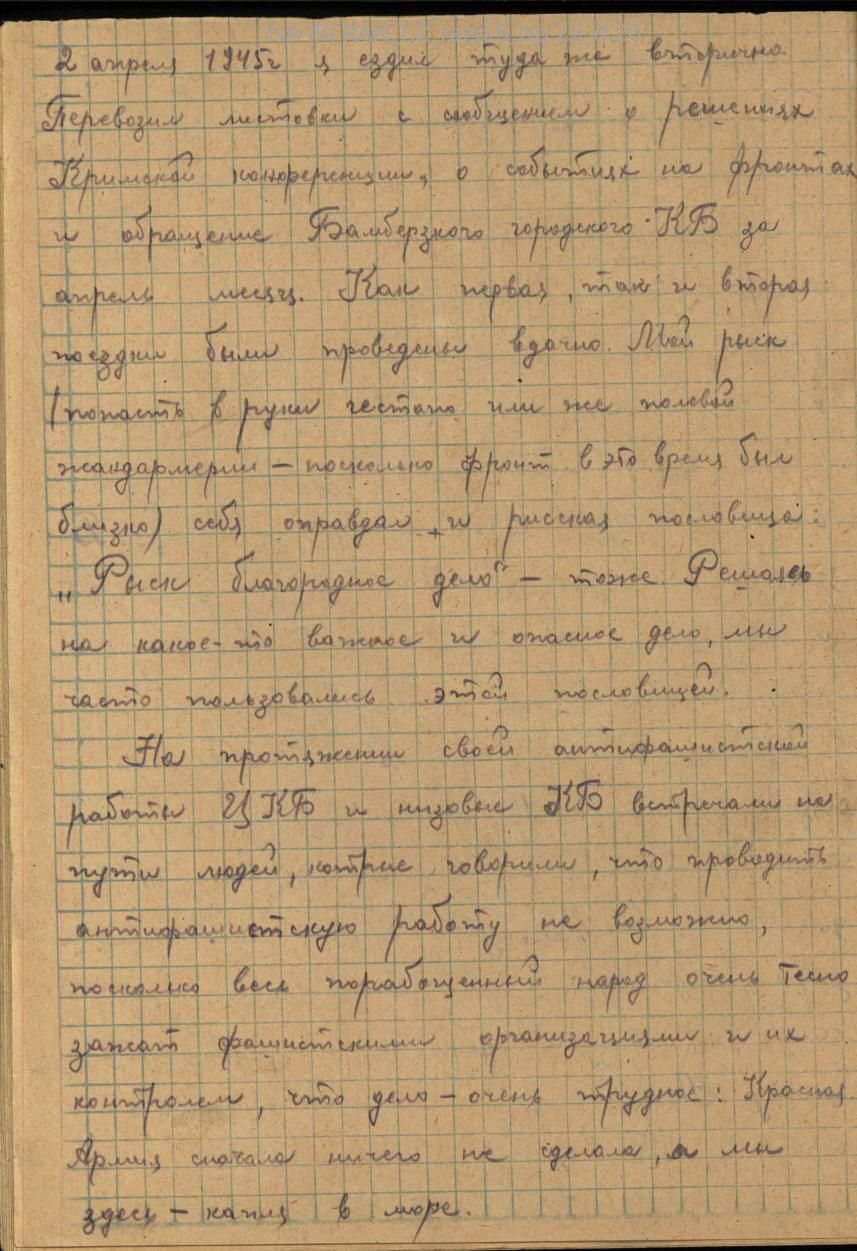 2 апреля 1945г я ездил туда же вторично
Перевозил листовки с сообщением о решениях
Кримской конференции, о событиях на фронтах
и обращение Бамберзкого городского КБ за
апрель месяц. Как первая, так и вторая
поездки были проведены вдачно. Мой рыск
(попасть в руки гестапо или же полевой
жандармерии — посколько фронт в это время был
близко) себя оправдал, и русская пословица:
„Рыск благородное дело" — тоже. Решаясь
на какое-то важное и опасное дело, мы
часто пользовались этой пословицей.
На протяжении своей антифашистской
работы ЦКБ и низовые КБ встречали на
пути людей, котрые говорили, что проводить
антифашистскую работу не возможно,
посколько весь порабощенный народ очень тесно
зажат фашистскими организациями и их
контролем, что дело — очень трудное: Красная
Армия сначала ничего не сделала, а мы
здесь — капля в море.